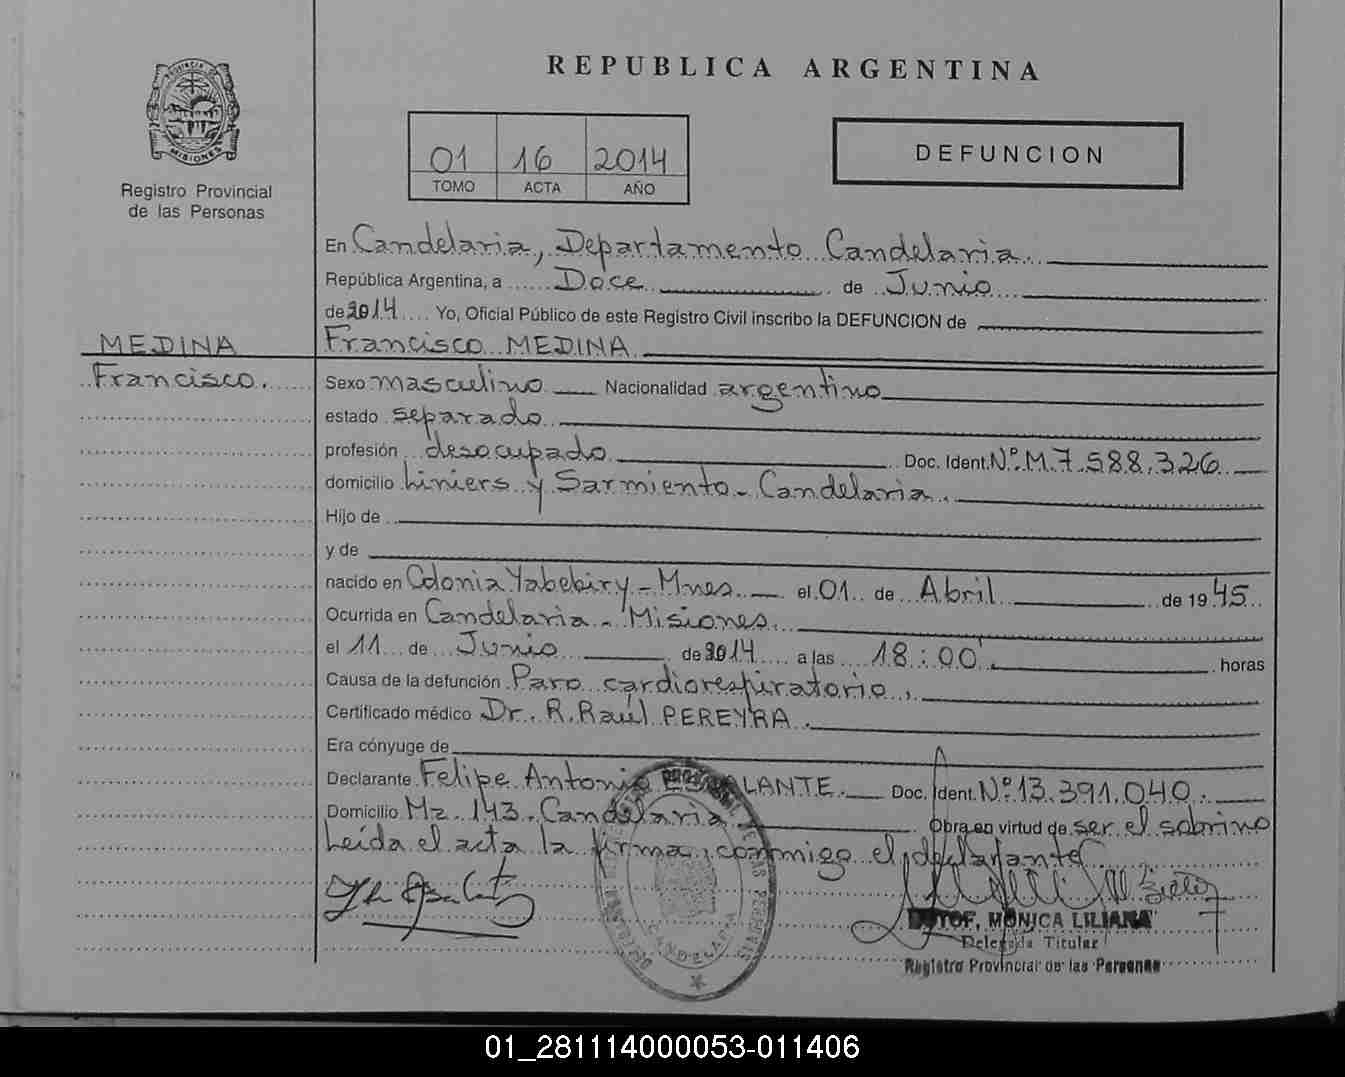 REPUBLICA ARGENTINA
PROVINCIA DE
MISIONES
Registro Provincial
de las Personas
01 16 2014
TOMO ACTA AÑO
DEFUNCION
En Candelaria, Departamento Candelaria
República Argentina, a Doce de Junio
de 2014 Yo, Oficial Público de este Registro Civil inscribo la DEFUNCION de
MEDINA
Francisco.
Francisco MEDINA
Sexo masculino Nacionalidad argentino
estado separado
profesión desocupado Doc. Ident. Nº. M. 7.588.326
domicilio Liniers y Sarmiento - Candelaria.
Hijo de
y de
nacido en Colonia Yabebiry - Mnes el 01 de Abril de 1945
Ocurrida en Candelaria - Misiones
el 11 de Junio de 2014 a las 18:00 horas
Causa de la defunción Paro cardiorespiratorio.
Certificado médico Dr. R. Raúl PEREYRA.
Era cónyuge de
Declarante Felipe Antonio ESCALANTE. Doc. Ident. Nº 13.391.040.
Domicilio Mz. 143. Candelaria Obra en virtud de ser el sobrino
Leída el acta la firma, conmigo el declarante
MONICA LILIANA
Delegada Titular
Registro Provincial de las Personas
CANDELARIA
01_281114000053-011406